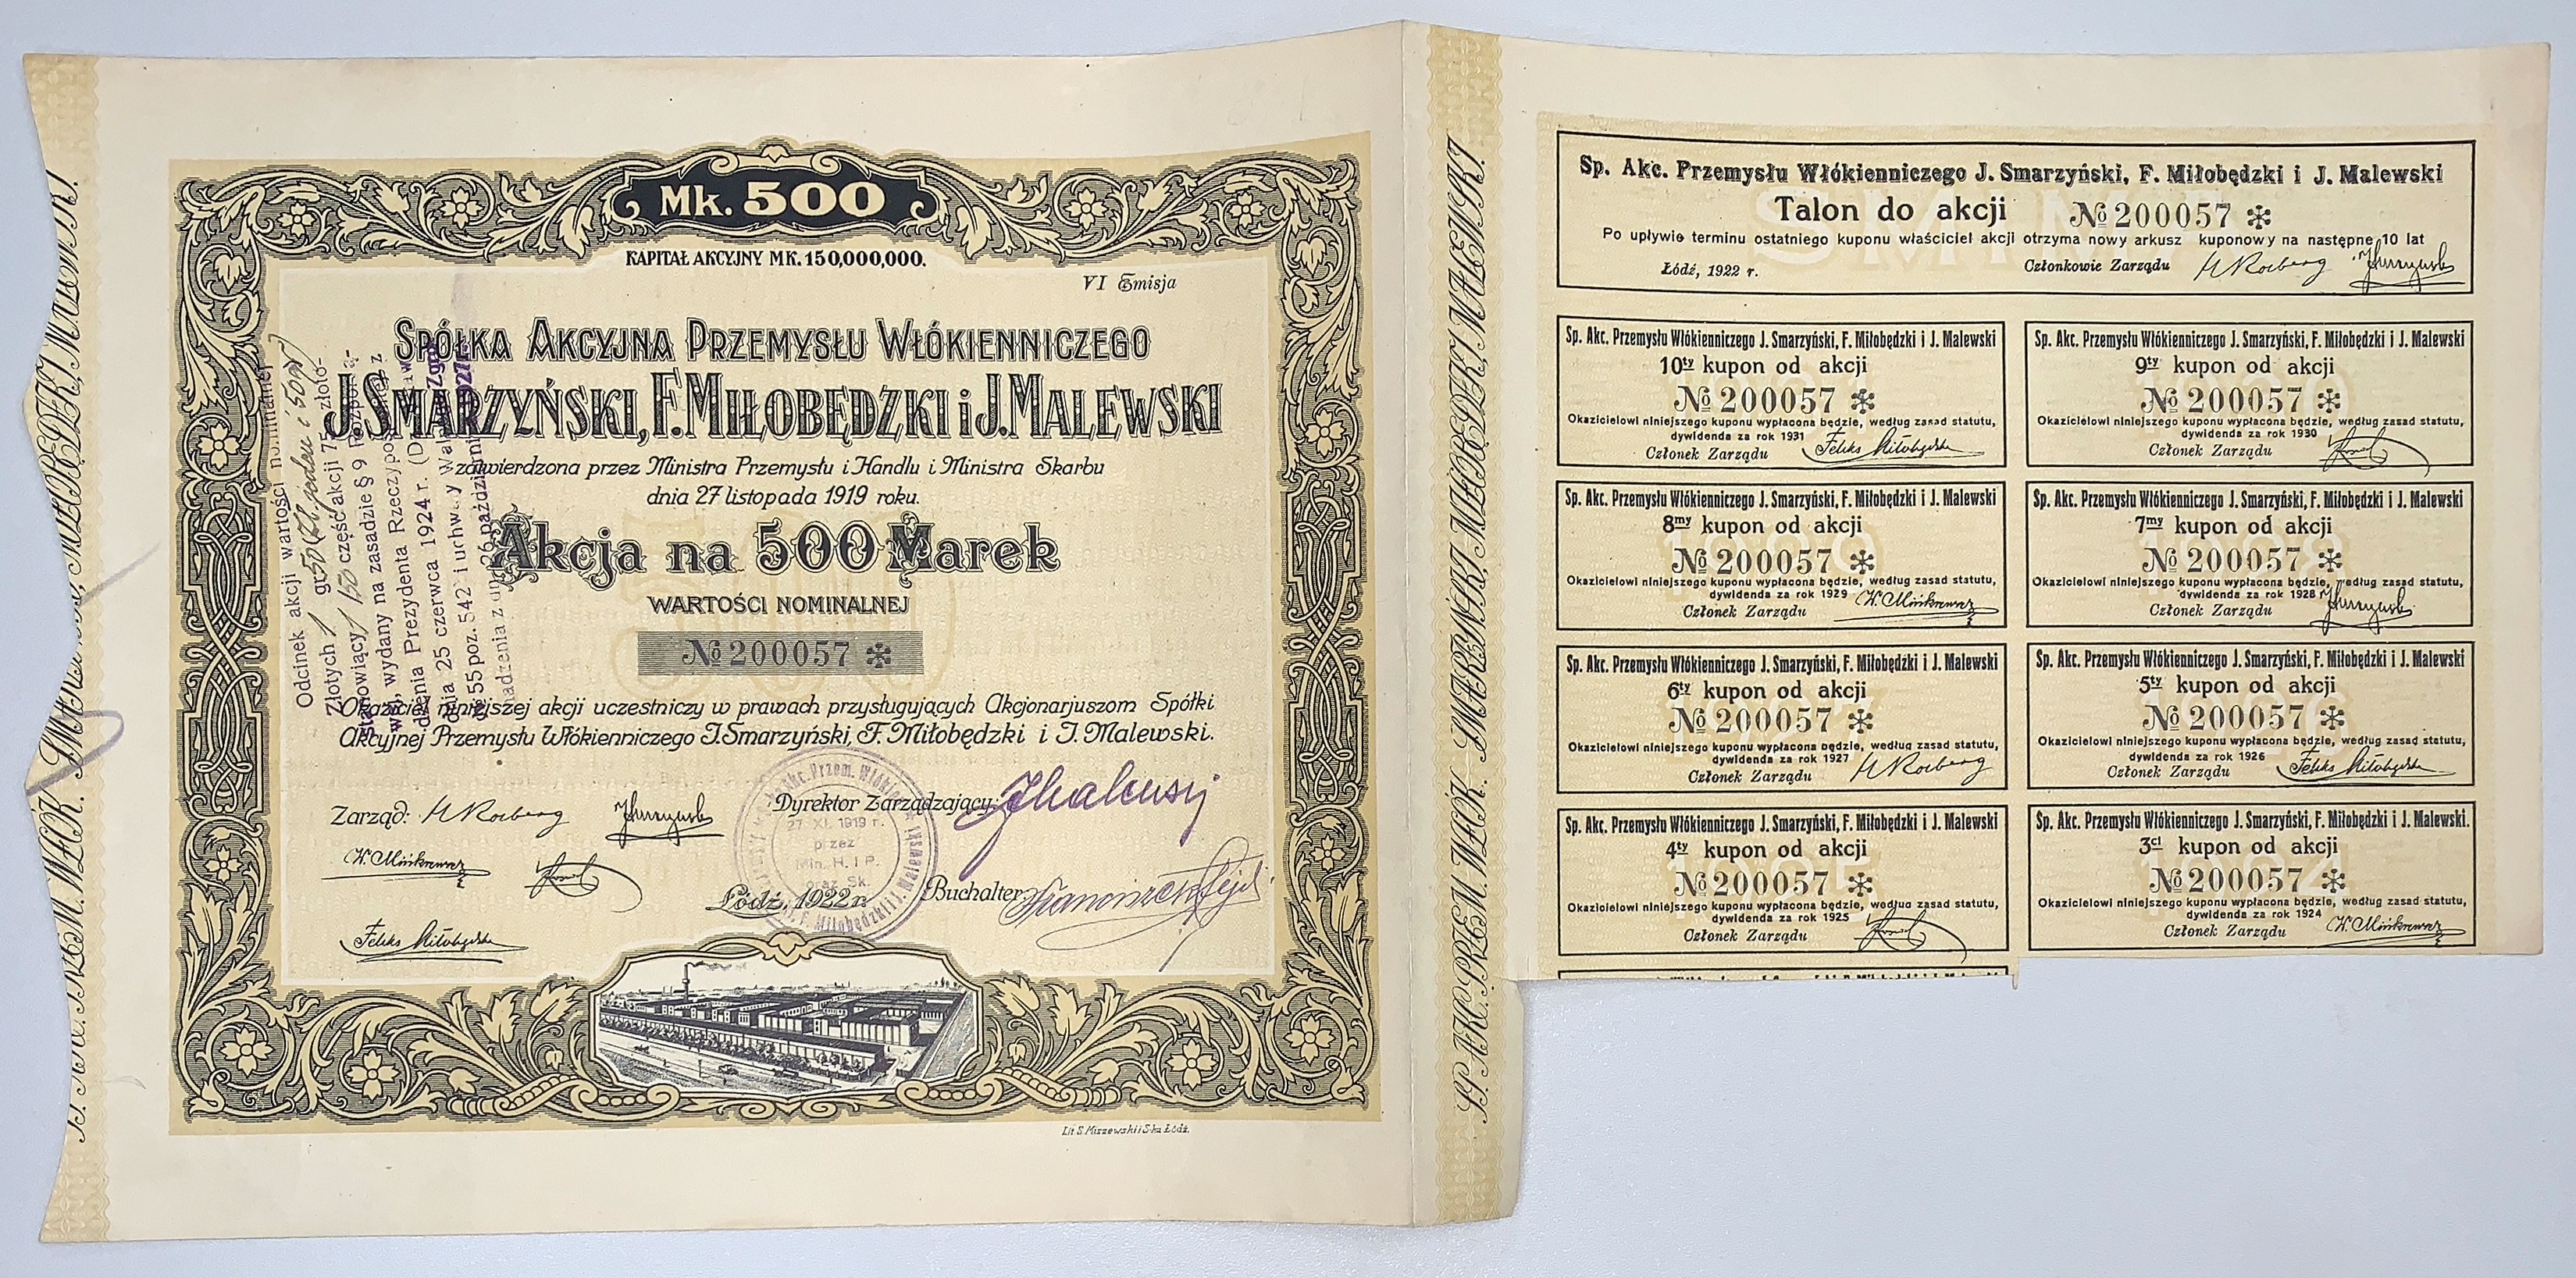 Mk. 500
KAPITAŁ AKCYJNY MK. 150,000,000.
VI Emisja
SPÓŁKA AKCYJNA PRZEMYSŁU WŁÓKIENNICZEGO
J. SMARZYŃSKI, F. MIŁOBĘDZKI i J. MALEWSKI
zatwierdzona przez Ministra Przemysłu i Handlu i Ministra Skarbu
dnia 27 listopada 1919 roku.
Akcja na 500 Marek
WARTOŚCI NOMINALNEJ
№ 200057 *
Okaziciel niniejszej akcji uczestniczy w prawach przysługujących Akcjonarjuszom Spółki
Akcyjnej Przemysłu Włókienniczego J. Smarzyński, F. Miłobędzki i J. Malewski.
Zarząd:
Feliks Miłobędzki
Dyrektor Zarządzający:
JMalewski
Łódź, 1922 r.
Buchalter:
27 XI. 1919 r.
przez
Min. H. i P.
Lit. S. Miszewski i S-ka Łódź.
Odcinek akcji wartości nominalnej
Złotych 1 gr 50 (Zł. jeden i 50 gr)
stanowiący 1/150 część akcji 75-złoto-
wej, wydany na zasadzie § 9 Rozporzą-
dzenia Prezydenta Rzeczypospolitej z
dnia 25 czerwca 1924 r.
№ 55 poz. 542 i uchwały
madzenia z dn. 26 październi
SP. AKC. PRZEM. WŁÓK. J. SMARZYŃSKI, F. MIŁOBĘDZKI, J. MALEWSKI.
SP. AKC. PRZEM. WŁÓK. J. SMARZYŃSKI, F. MIŁOBĘDZKI, J. MALEWSKI.
Sp. Akc. Przemysłu Włókienniczego J. Smarzyński, F. Miłobędzki i J. Malewski
Talon do akcji № 200057 *
Po upływie terminu ostatniego kuponu właściciel akcji otrzyma nowy arkusz kuponowy na następne 10 lat
Łódź, 1922 r. Członkowie Zarządu
Sp. Akc. Przemysłu Włókienniczego J. Smarzyński, F. Miłobędzki i J. Malewski
10ty kupon od akcji
№ 200057 *
Okazicielowi niniejszego kuponu wypłacona będzie, według zasad statutu,
dywidenda za rok 1931
Członek Zarządu Feliks Miłobędzki
Sp. Akc. Przemysłu Włókienniczego J. Smarzyński, F. Miłobędzki i J. Malewski
9ty kupon od akcji
№ 200057 *
Okazicielowi niniejszego kuponu wypłacona będzie, według zasad statutu,
dywidenda za rok 1930
Członek Zarządu
Sp. Akc. Przemysłu Włókienniczego J. Smarzyński, F. Miłobędzki i J. Malewski
8my kupon od akcji
№ 200057 *
Okazicielowi niniejszego kuponu wypłacona będzie, według zasad statutu,
dywidenda za rok 1929
Członek Zarządu
Sp. Akc. Przemysłu Włókienniczego J. Smarzyński, F. Miłobędzki i J. Malewski
7my kupon od akcji
№ 200057 *
Okazicielowi niniejszego kuponu wypłacona będzie, według zasad statutu,
dywidenda za rok 1928
Członek Zarządu
Sp. Akc. Przemysłu Włókienniczego J. Smarzyński, F. Miłobędzki i J. Malewski
6ty kupon od akcji
№ 200057 *
Okazicielowi niniejszego kuponu wypłacona będzie, według zasad statutu,
dywidenda za rok 1927
Członek Zarządu
Sp. Akc. Przemysłu Włókienniczego J. Smarzyński, F. Miłobędzki i J. Malewski
5ty kupon od akcji
№ 200057 *
Okazicielowi niniejszego kuponu wypłacona będzie, według zasad statutu,
dywidenda za rok 1926
Członek Zarządu Feliks Miłobędzki
Sp. Akc. Przemysłu Włókienniczego J. Smarzyński, F. Miłobędzki i J. Malewski
4ty kupon od akcji
№ 200057 *
Okazicielowi niniejszego kuponu wypłacona będzie, według zasad statutu,
dywidenda za rok 1925
Członek Zarządu
Sp. Akc. Przemysłu Włókienniczego J. Smarzyński, F. Miłobędzki i J. Malewski.
3ci kupon od akcji
№ 200057 *
Okazicielowi niniejszego kuponu wypłacona będzie, według zasad statutu,
dywidenda za rok 1924
Członek Zarządu